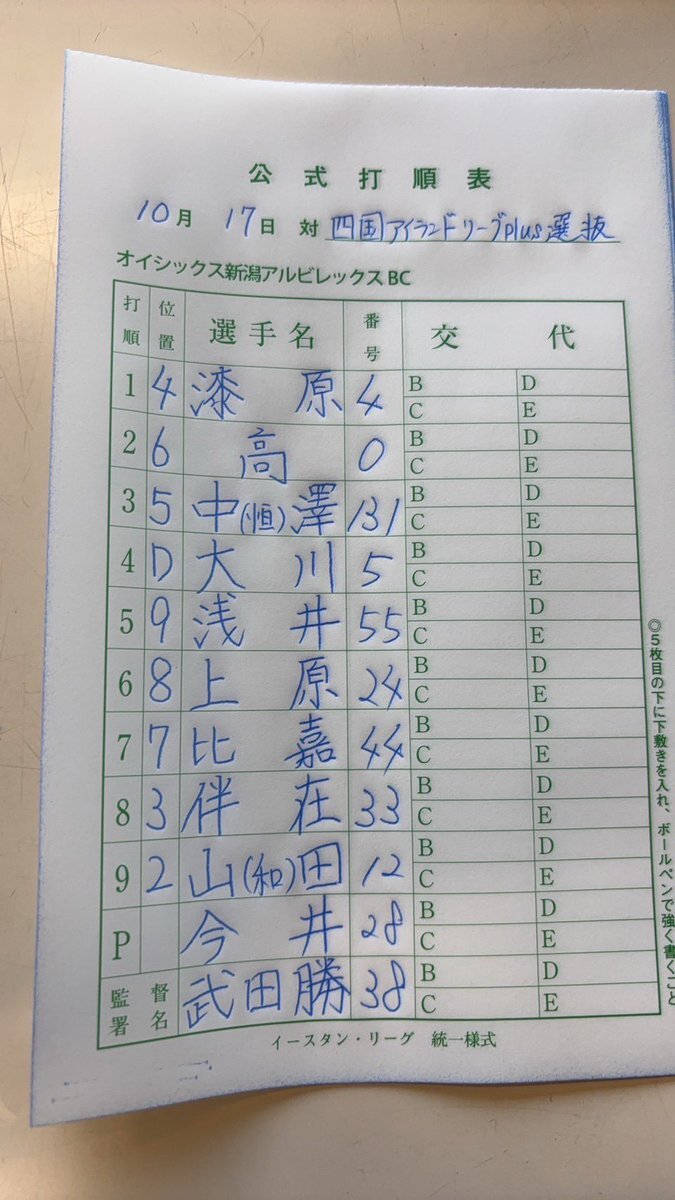 公式打順表
10月 17日 対 四国アイランドリーグplus選抜
オイシックス新潟アルビレックスBC
打順 位置 選手名 番号 交代
1 4 漆原 4 B D C E
2 6 高 0 B D C E
3 5 中(恒)澤 131 B D C E
4 D 大川 5 B D C E
5 9 浅井 55 B D C E
6 8 上原 24 B D C E
7 7 比嘉 44 B D C E
8 3 伴在 33 B D C E
9 2 山(和)田 12 B D C E
P 今井 28 B D C E
監督署名 武田勝 38 B D C E
イースタン・リーグ 統一様式
◎5枚目の下に下敷きを入れ、ボールペンで強く書くこと